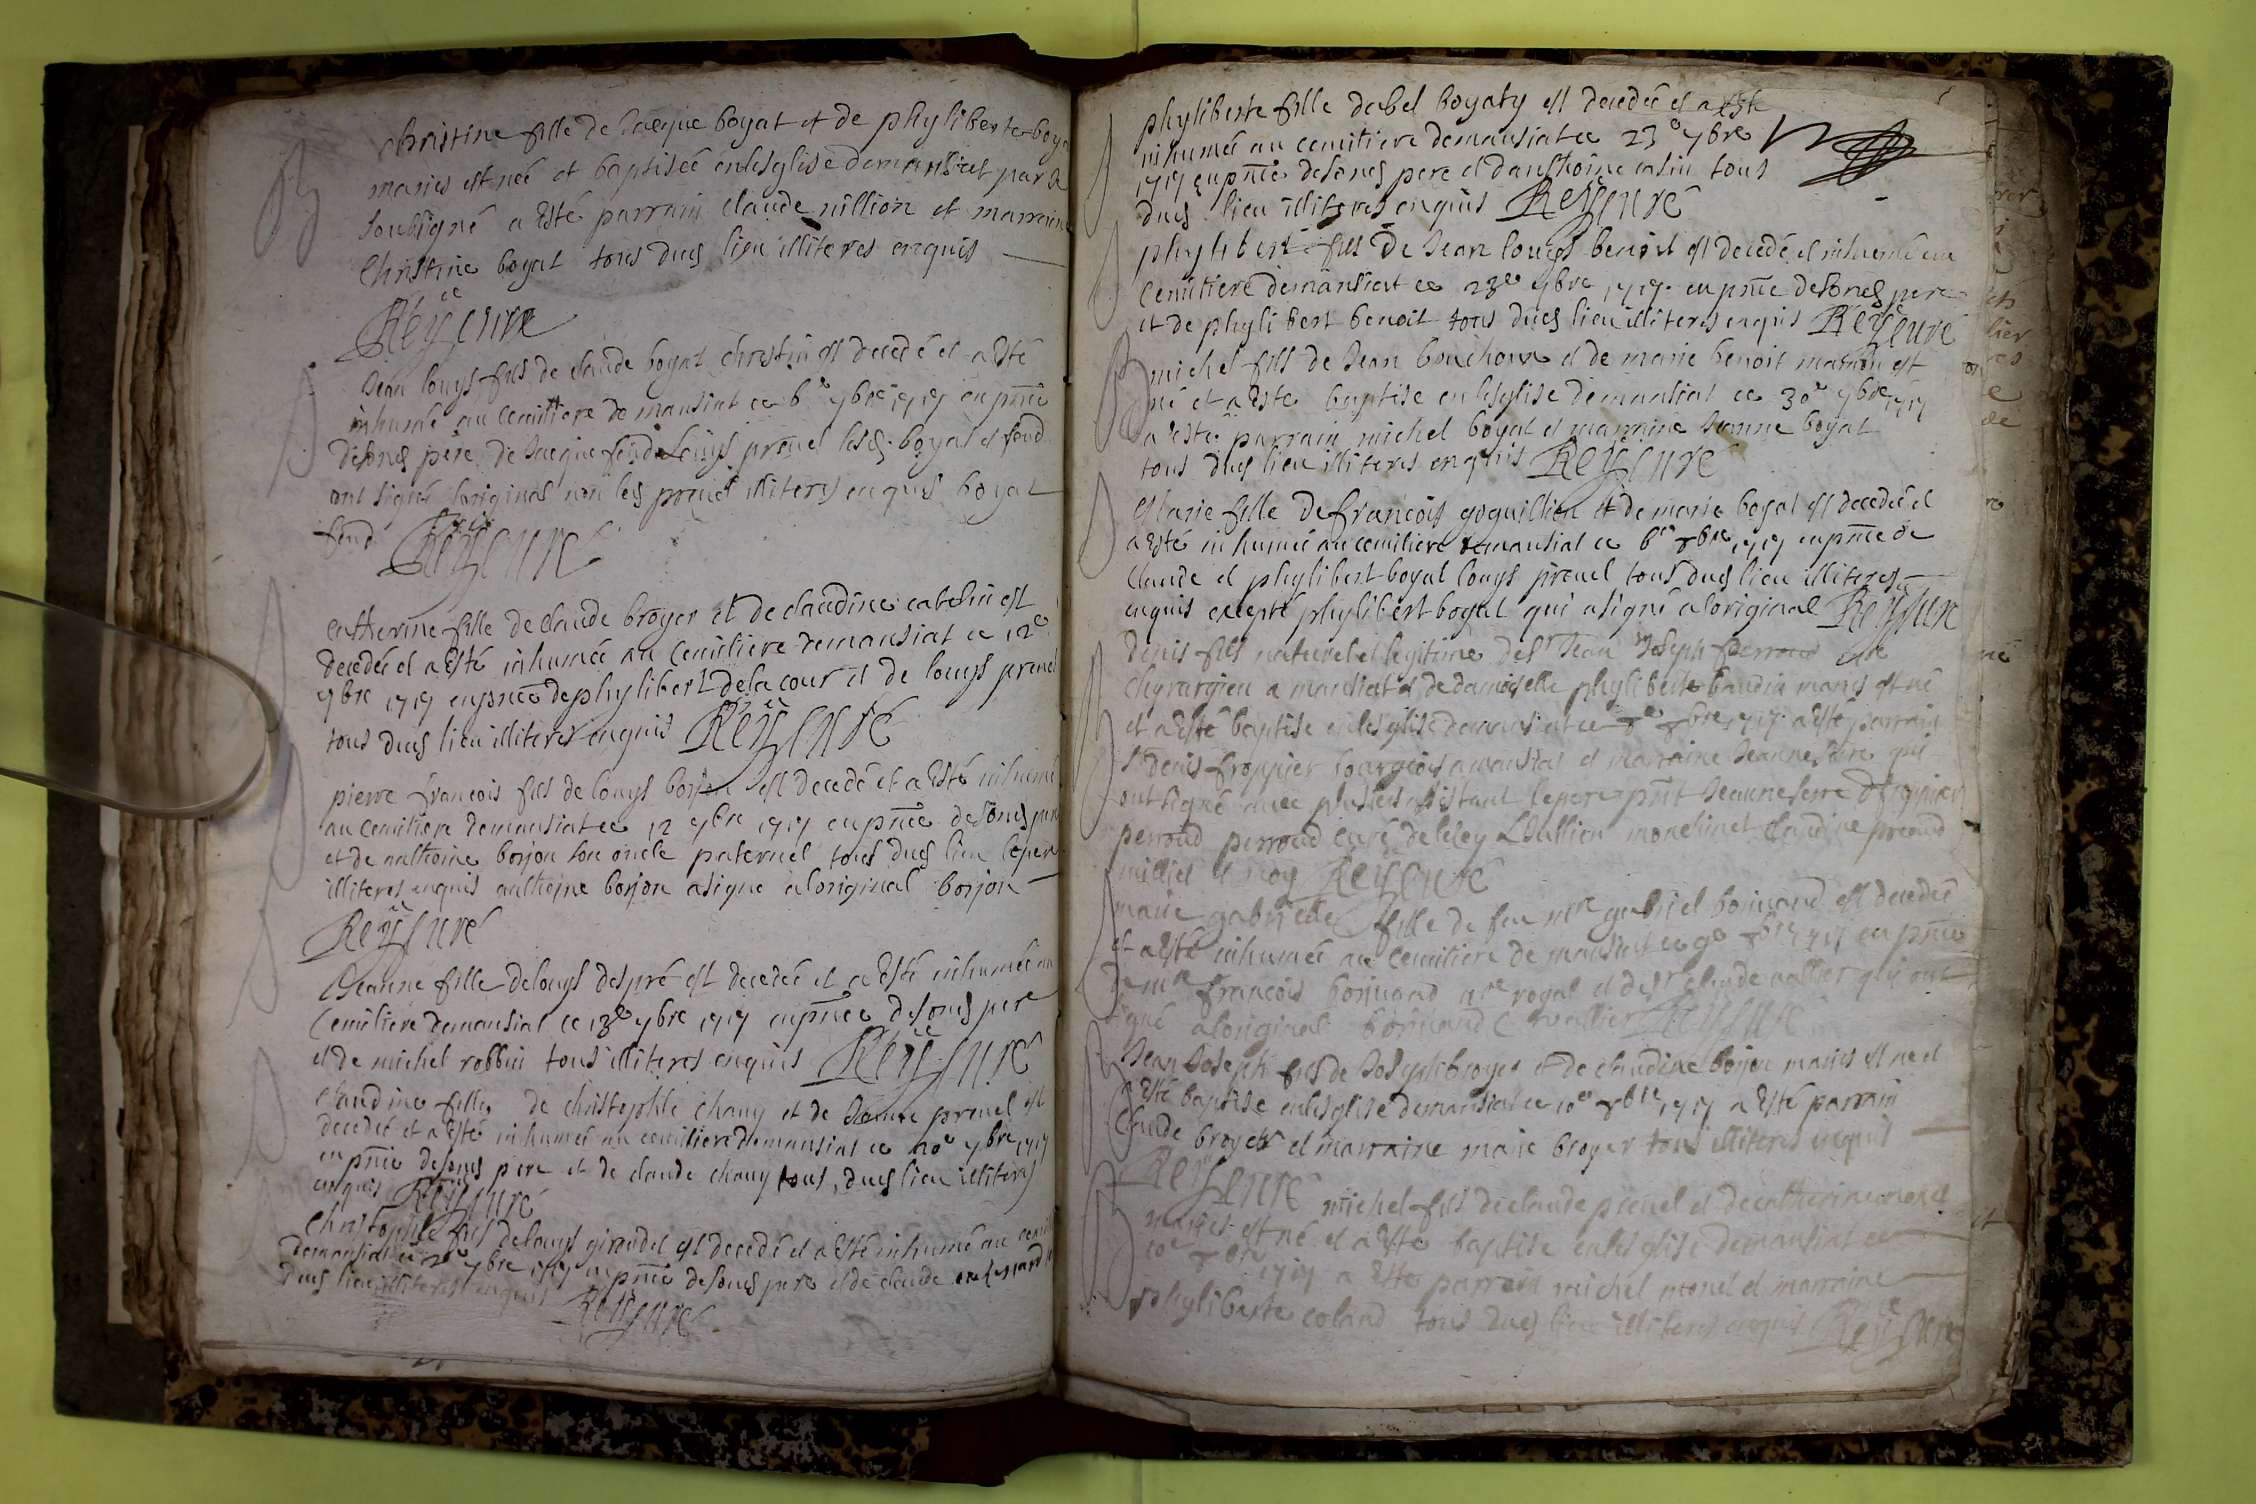 christine fille de Jacque boyat et de phyliberte boya
maries est neé et baptiseé en lesglise de mansiat par Je
soubsigné a Esté parrain claude million et marraine
Christine boyat tous duds lieu illiteres enquis
Reÿ curé
Jean louys fils de claude boyat christin est decedé et a Esté
inhumé au cemitiere de mansiat ce 6e 7bre 1717 en pnce
de sonds pere, de Jacque fond louys preuel lesds boyat et fond
ont signé loriginal non led preuel illiteres enquis boyat
fond Reÿ curé
catherine fille de claude broyer et de claudine catelin est
decedeé et a Esté inhumeé au cemitiere de mansiat ce 12e
7bre 1717 en pnce de phylibert delacour et de louys preuel
tous duds lieu illiteres enquis Reÿ curé
pierre francois fils de louys borjon est decedé et a Esté inhumé
au cemitiere de mansiat ce 12 7bre 1717 en pnce de sonds pere
et de anthoine borjon son oncle paternel tous duds lieu le pere
illiteres enquis anthoine borjon a signe a loriginal borjon
Reÿ curé
Jeanne fille de louys despré est decedeé et a Esté inhumeé au
Cemitiere de mansiat ce 18e 7bre 1717 en pnce de sonds pere
et de michel robbin tous illiteres enquis Reÿ curé
claudine fille de christophle chany et de Jeanne preuel est
decedeé et a Esté inhumeé au cemitiere de mansiat ce 20e 7bre 1717
en pnce de sonds pere et de claude chany tous duds lieu illiteres
enquis Reÿ curé
Christophle fils de louys giraudet est decedé et a Esté inhumé au cemit
de mansiat ce 7bre 1717 en pnce de sonds pere et de claude
duds lieu illiteres enquis Reÿ curé
phyliberte fille dabel boyaty est decedeé et a Esté
inhumeé au cemitiere de mansiat ce 23e 7bre
1717 en pnce de sonds pere et danthoine tous
duds lieu illiteres enquis Reÿ curé
phylibert fils de Jean louys benoit est decedé et inhumé au
Cemitiere de mansiat ce 28e 7bre 1717 en pnce de sonds pere
et de phylibert benoit tous duds lieu illiteres enquis Reÿ curé
michel fils de Jean bouchoux et de marie benoit est
né et a Esté baptisé en lesglise de mansiat ce 30e 7bre 1717
a Esté parrain michel boyat et marraine Jeanne boyat
tous duds lieu illiteres enquis Reÿ curé
Marie fille de francois goguillien et de marie boyat est decedeé et
a Esté inhumeé au cemitiere de mansiat ce 6e 8bre 1717 en pnce de
Claude et phylibert boyat louys preuel tous duds lieu illiteres
enquis excepté phylibert boyat qui a signé a loriginal Reÿ curé
Denis fils naturel et legitime de Sr Jean Joseph perroud
chyrurgien a mansiat et de damoiselle phyliberte baudin maries est né
et a Esté baptisé en lesglise de mansiat ce 8e 8bre 1717 a Esté parrain
Sr denis froppier bourgeois a mansiat et marraine Jeanne serre qui
ont signé auec plusieurs assistant le pere pnt Jeanne serre D froppier
perroud perroud curé de monchinet Claudine preaud
millier et moy Reÿ curé
marie gabrielle fille de feu mre gabriel borjuand est decedeé
et a Esté inhumeé au cemitiere de mansiat ce 9e 8bre 1717 en pnce
de mre francois borjuand nre royal et de Sr claude vallier qui ont
signé a loriginal borjuand C vallier Reÿ curé
Jean Joseph fils de Joseph broyer et de claudine borjon maries est né et
a Esté baptisé en lesglise de mansiat ce 10e 8bre 1717 a Esté parrain
Claude broyer et marraine marie broyer tous illiteres enquis
Reÿ curé michel fils de claude preuel et de catherine morel
maries est né et a Esté baptisé en lesglise de mansiat ce
10e 8bre 1717 a Esté parrain michel morel et marraine
phyliberte coland tous duds lieu illiteres enquis Reÿ curé